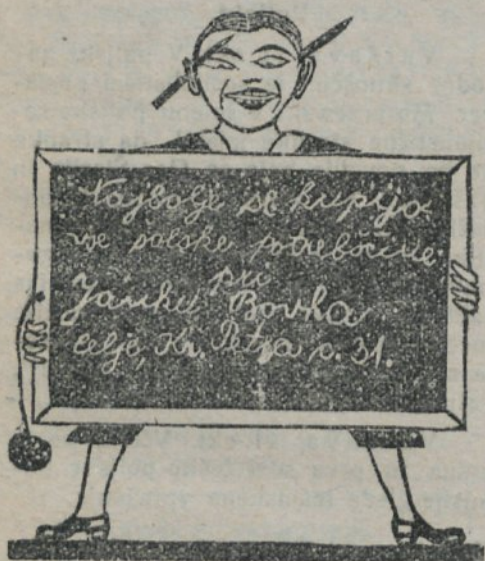 Najbolje se kupijo
vse šolske potrebščine
pri
Janku Bovha
Celje, Kr. Petra c. 31.